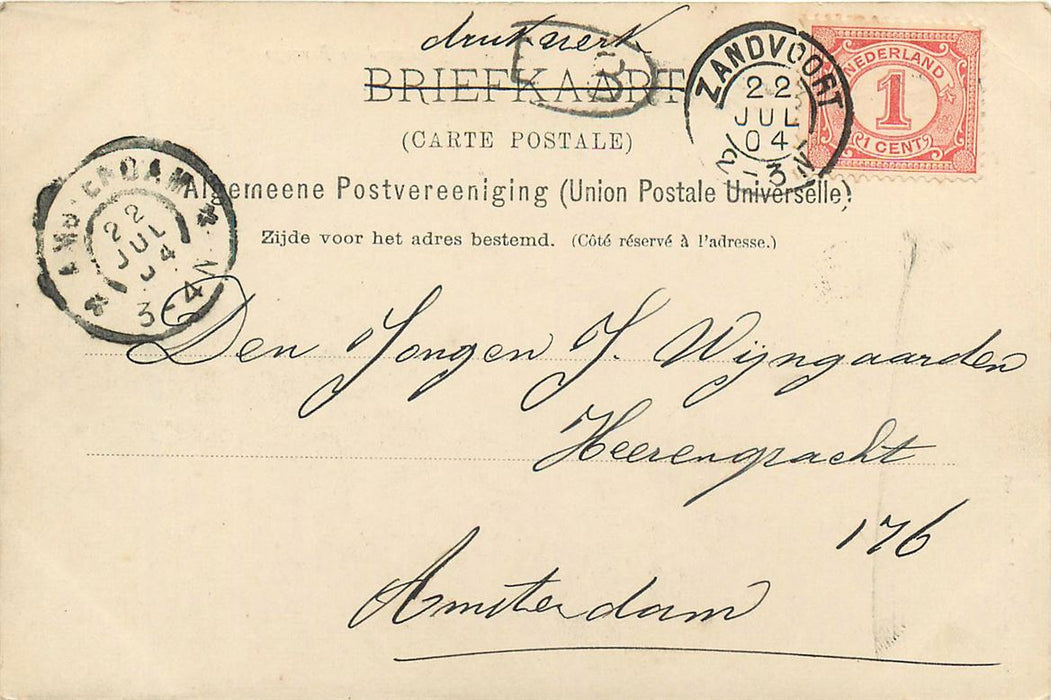 drukwerk
BRIEFKAART
(CARTE POSTALE)
Algemeene Postvereeniging (Union Postale Universelle)
Zijde voor het adres bestemd. (Côté réservé à l'adresse.)
ZANDVOORT
22
JUL
04
NEDERLAND
1
1 CENT
AMSTERDAM
22
JUL
04
3-4 N
Den Jongen J. Wijngaarden
Heerengracht
176
Amsterdam